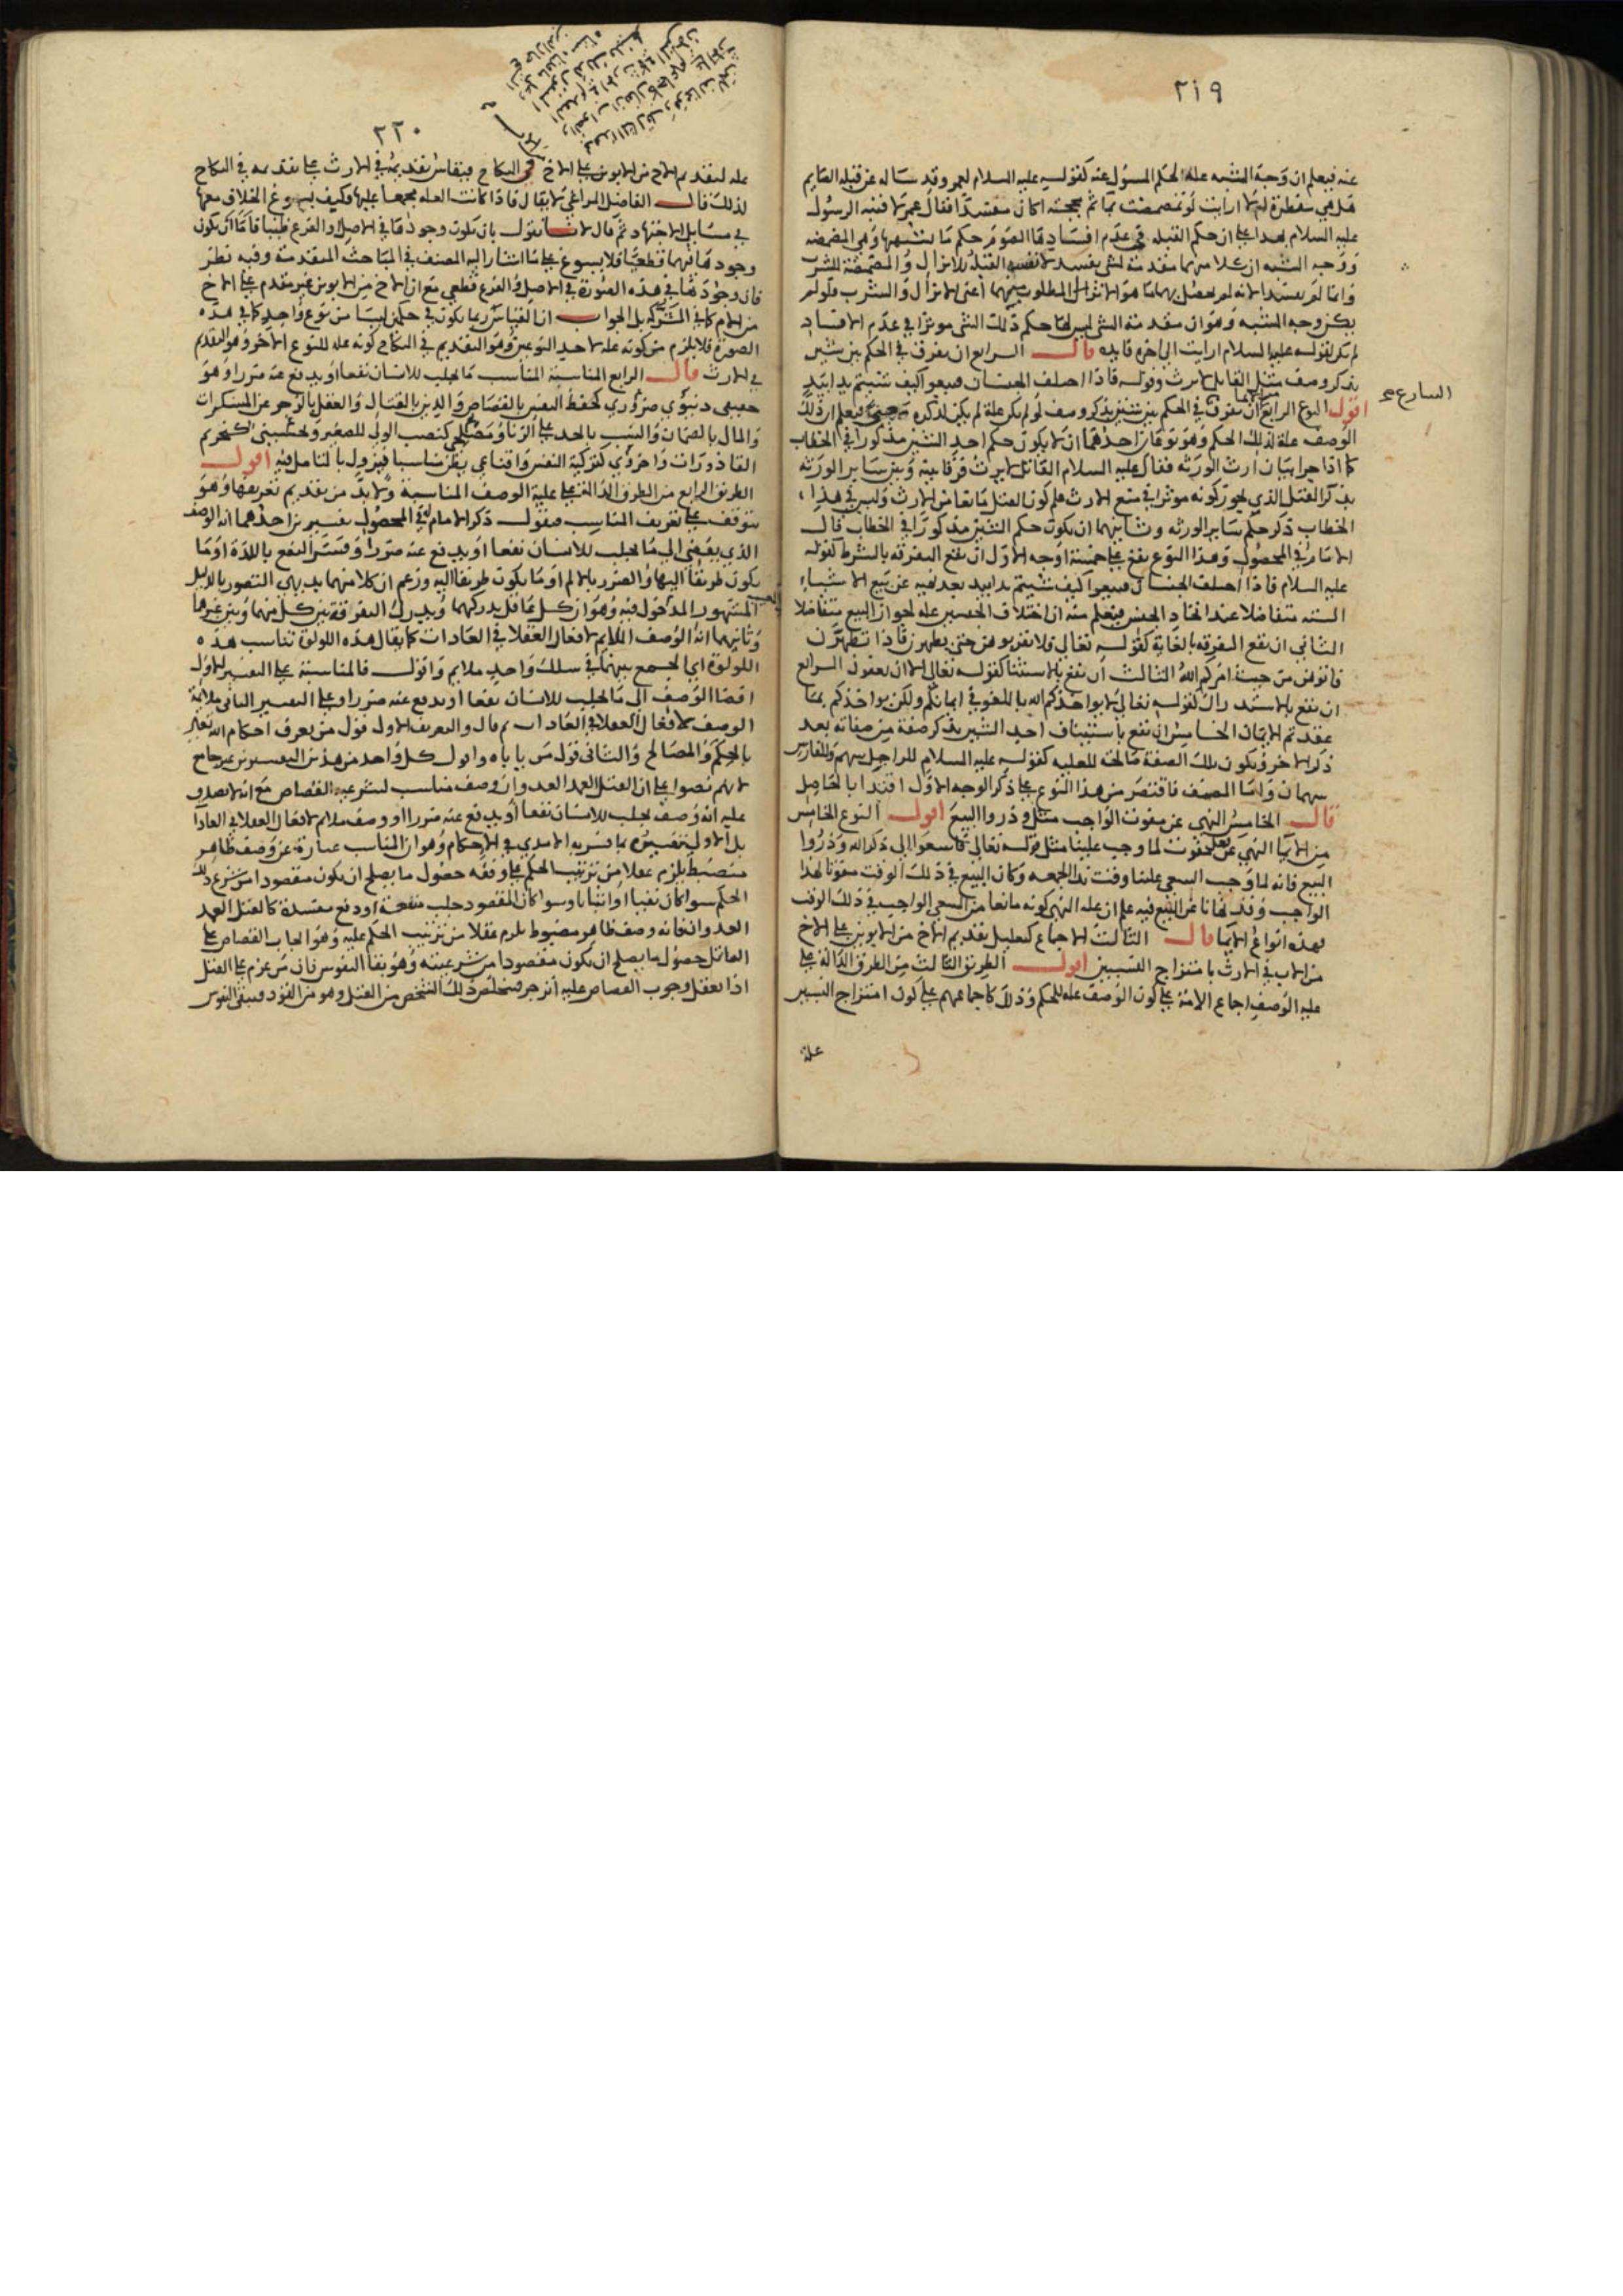 ٢١٩
عنه فيعلم ان وجه الشبه علة الحكم المسؤل عنه كقوله عليه السلام لعمر وقد ساله عن قبلة الصايم
هل هي مفطرة ام لا ارايت لو تمضمضت بماء ثم مججته اكان مفسدا فقال عمر لا فنبه الرسول
عليه السلام بهذا على ان حكم القبلة في عدم افسادها الصوم حكم ما يشبهها وهي المضمضة
ووجه الشبه ان كلا منهما مقدمة لشي يفسد القبلة للانزال والمضمضة للشرب
وانما لم يفسد لانه لم يحصل بهما ما هو الاثر المطلوب منهما اعني الانزال والشرب فلو لم
يكن وجه الشبه وهو ان مقدمة الشي ليس لها حكم ذلك الشي موثرا في عدم الافساد
لم يكن لقوله عليه السلام ارايت الى اخره فايدة قال الرابع ان يفرق في الحكم بين شيين
بذكر وصف مثل القاتل لا يرث وقوله فاذا اختلف الجنسان فبيعوا كيف شيتم يدا بيد
اقول النوع الرابع من الايما ان يفرق في الحكم بين شيين بذكر وصف لو لم يكن علة لم يكن لذكره معنى فيعلم ان ذلك
الشارع صح
الوصف علة لذلك الحكم وهو نوعان احدهما ان لا يكون حكم احد الشيين مذكورا في الخطاب
كما اذا جرا بيان ارث الورثة فقال عليه السلام القاتل لا يرث فرقا بينه وبين ساير الورثة
بذكر القتل الذي يجوز كونه موثرا في منع الارث فعلم كون القتل مانعا من الارث وليس في هذا
الخطاب ذكر حكم ساير الورثة وثانيهما ان يكون حكم الشيين مذكورا في الخطاب قال
الامام في المحصول وهذا النوع يقع على خمسة اوجه الاول ان تقع التفرقة بالشرط كقوله
عليه السلام فاذا اختلف الجنسان فبيعوا كيف شيتم يدا بيد بعد نهيه عن بيع الاشياء
الستة متفاضلا عند اتحاد الجنس فيعلم منه ان اختلاف الجنسين علة لجواز البيع متفاضلا
الثاني ان تقع التفرقة بالغاية كقوله تعالى ولا تقربوهن حتى يطهرن فاذا تطهرن
فاتوهن من حيث امركم الله الثالث ان تقع بالاستثنا كقوله تعالى الا ان يعفون الرابع
ان تقع بالاستدراك كقوله تعالى لا يواخذكم الله باللغو في ايمانكم ولكن يواخذكم بما
عقدتم الايمان الخامس ان تقع باستيناف احد الشيين بذكر صفة من صفاته بعد
ذكر الاخر وتكون تلك الصفة صالحة للعلية كقوله عليه السلام للراجل سهم وللفارس
سهمان واما المصنف فاقتصر من هذا النوع على ذكر الوجه الاول اقتدا بالحاصل
قال الخامس النهي عن مفوت الواجب مثل وذروا البيع اقول النوع الخامس
من الايما النهي عن فعل مفوت لما وجب علينا مثل قوله تعالى فاسعوا الى ذكر الله وذروا
البيع فانه لما وجب السعي علينا وقت ندا الجمعة وكان البيع في ذلك الوقت مفوتا لهذا
الواجب وقد نهانا عن البيع فيه علم ان علة النهي كونه مانعا من السعي الواجب في ذلك الوقت
فهذه انواع الايما قال الثالث الاجماع كتعليل تقديم الاخ من الابوين على الاخ
من الاب في الارث بامتزاج النسبين اقول الطريق الثالث من الطرق الدالة على
علية الوصف اجماع الامة على كون الوصف علة للحكم وذلك كاجماعهم على كون امتزاج النسبين
علة
٢٢٠
علة لتقديم الاخ من الابوين على الاخ في النكاح فيقاس تقديمه في الارث على تقديمه في النكاح
لذلك قال الفاضل المراغي لا يقال فاذا كانت العلة مجمعا عليها فكيف يسوغ الخلاف معها
في مسايل الاجتهاد ثم قال لانا نقول بان يكون وجودها في الاصل او الفرع ظنيا فاما ان يكون
وجودها فيهما قطعيا فلا يسوغ على ما اشار اليه المصنف في المباحث المتقدمة وفيه نظر
فان وجودها في هذه الصورة في الاصل والفرع قطعي مع ان الاخ من الابوين غير مقدم على الاخ
من الام كما في المشتركة بل الجواب ان القياس ربما يكون في حكمين ليسا من نوع واحد كما في هذه
الصورة فلا يلزم من كونه علة لاحد النوعين وهو التقديم في النكاح كونه علة للنوع الاخر وهو التقديم
في الارث قال الرابع المناسبة المناسب ما يجلب للانسان نفعا او يدفع عنه ضررا وهو
حقيقي دنيوي ضروري كحفظ النفس بالقصاص والدين بالقتال والعقل بالزجر عن المسكرات
والمال بالضمان والنسب بالحد على الزنا ومصلحي كنصب الولي للصغير وتحسيني كتحريم
القاذورات واخروي كتزكية النفس واقناعي يظن مناسبا فيزول بالتامل فيه اقول
الطريق الرابع من الطرق الدالة على علية الوصف المناسبة ولا بد من تقديم تعريفها وهو
يتوقف على تعريف المناسب فنقول ذكر الامام له في المحصول تفسيرين احدهما انه الوصف
الذي يفضي الى ما يجلب للانسان نفعا او يدفع عنه ضررا وفسر النفع باللذة او ما
يكون طريقا اليها والضرر بالالم او ما يكون طريقا اليه وزعم ان كلا منهما بديهي التصور بالدليل
المشهور المدخول فيه وهو ان كل عاقل يدركهما ويدرك التفرقة بين كل منهما وبين غيرها
وثانيهما انه الوصف الملايم لافعال العقلا في العادات كما يقال هذه اللولوة تناسب هذه
اللولوة اي الجمع بينهما في سلك واحد ملايم واقول فالمناسبة على التفسير الاول
افضا الوصف الى ما يجلب للانسان نفعا او يدفع عنه ضررا وعلى التفسير الثاني ملايمة
الوصف لافعال العقلا في العادات ثم قال والتعريف الاول قول من يعرف احكام الله
بالحكم والمصالح والثاني قول من ياباه واقول كل واحد من هذين التفسيرين غير جامع
لانهم نصوا على ان القتل العمد العدوان وصف مناسب لشرعية القصاص مع انه لا يصدق
عليه انه وصف يجلب للانسان نفعا او يدفع عنه ضررا او وصف ملايم لافعال العقلا في العادات
بل الاولى تفسيره بما فسره به الامدي في الاحكام وهو ان المناسب عبارة عن وصف ظاهر
منضبط يلزم عقلا من ترتيب الحكم على وفقه حصول ما يصلح ان يكون مقصودا من شرع ذلك
الحكم سوا كان نفيا او اثباتا وسوا كان المقصود جلب منفعة او دفع مفسدة كالقتل العمد
العدوان فانه وصف ظاهر مضبوط يلزم عقلا من ترتيب الحكم عليه وهو ايجاب القصاص على
القاتل حصول ما يصلح ان يكون مقصودا من شرعيته وهو بقا النفوس فان من عزم على القتل
اذا تعقل وجوب القصاص عليه انزجر فتخلص ذلك الشخص من القتل وهو من القود فتبقى النفوس